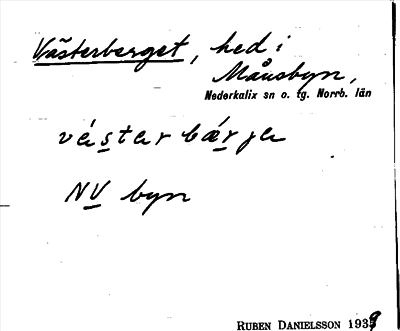 Västerberget, hed i
Månsbyn,
Nederkalix sn o. tg. Norrb. län
véster bærje
NV byn
RUBEN DANIELSSON 1939